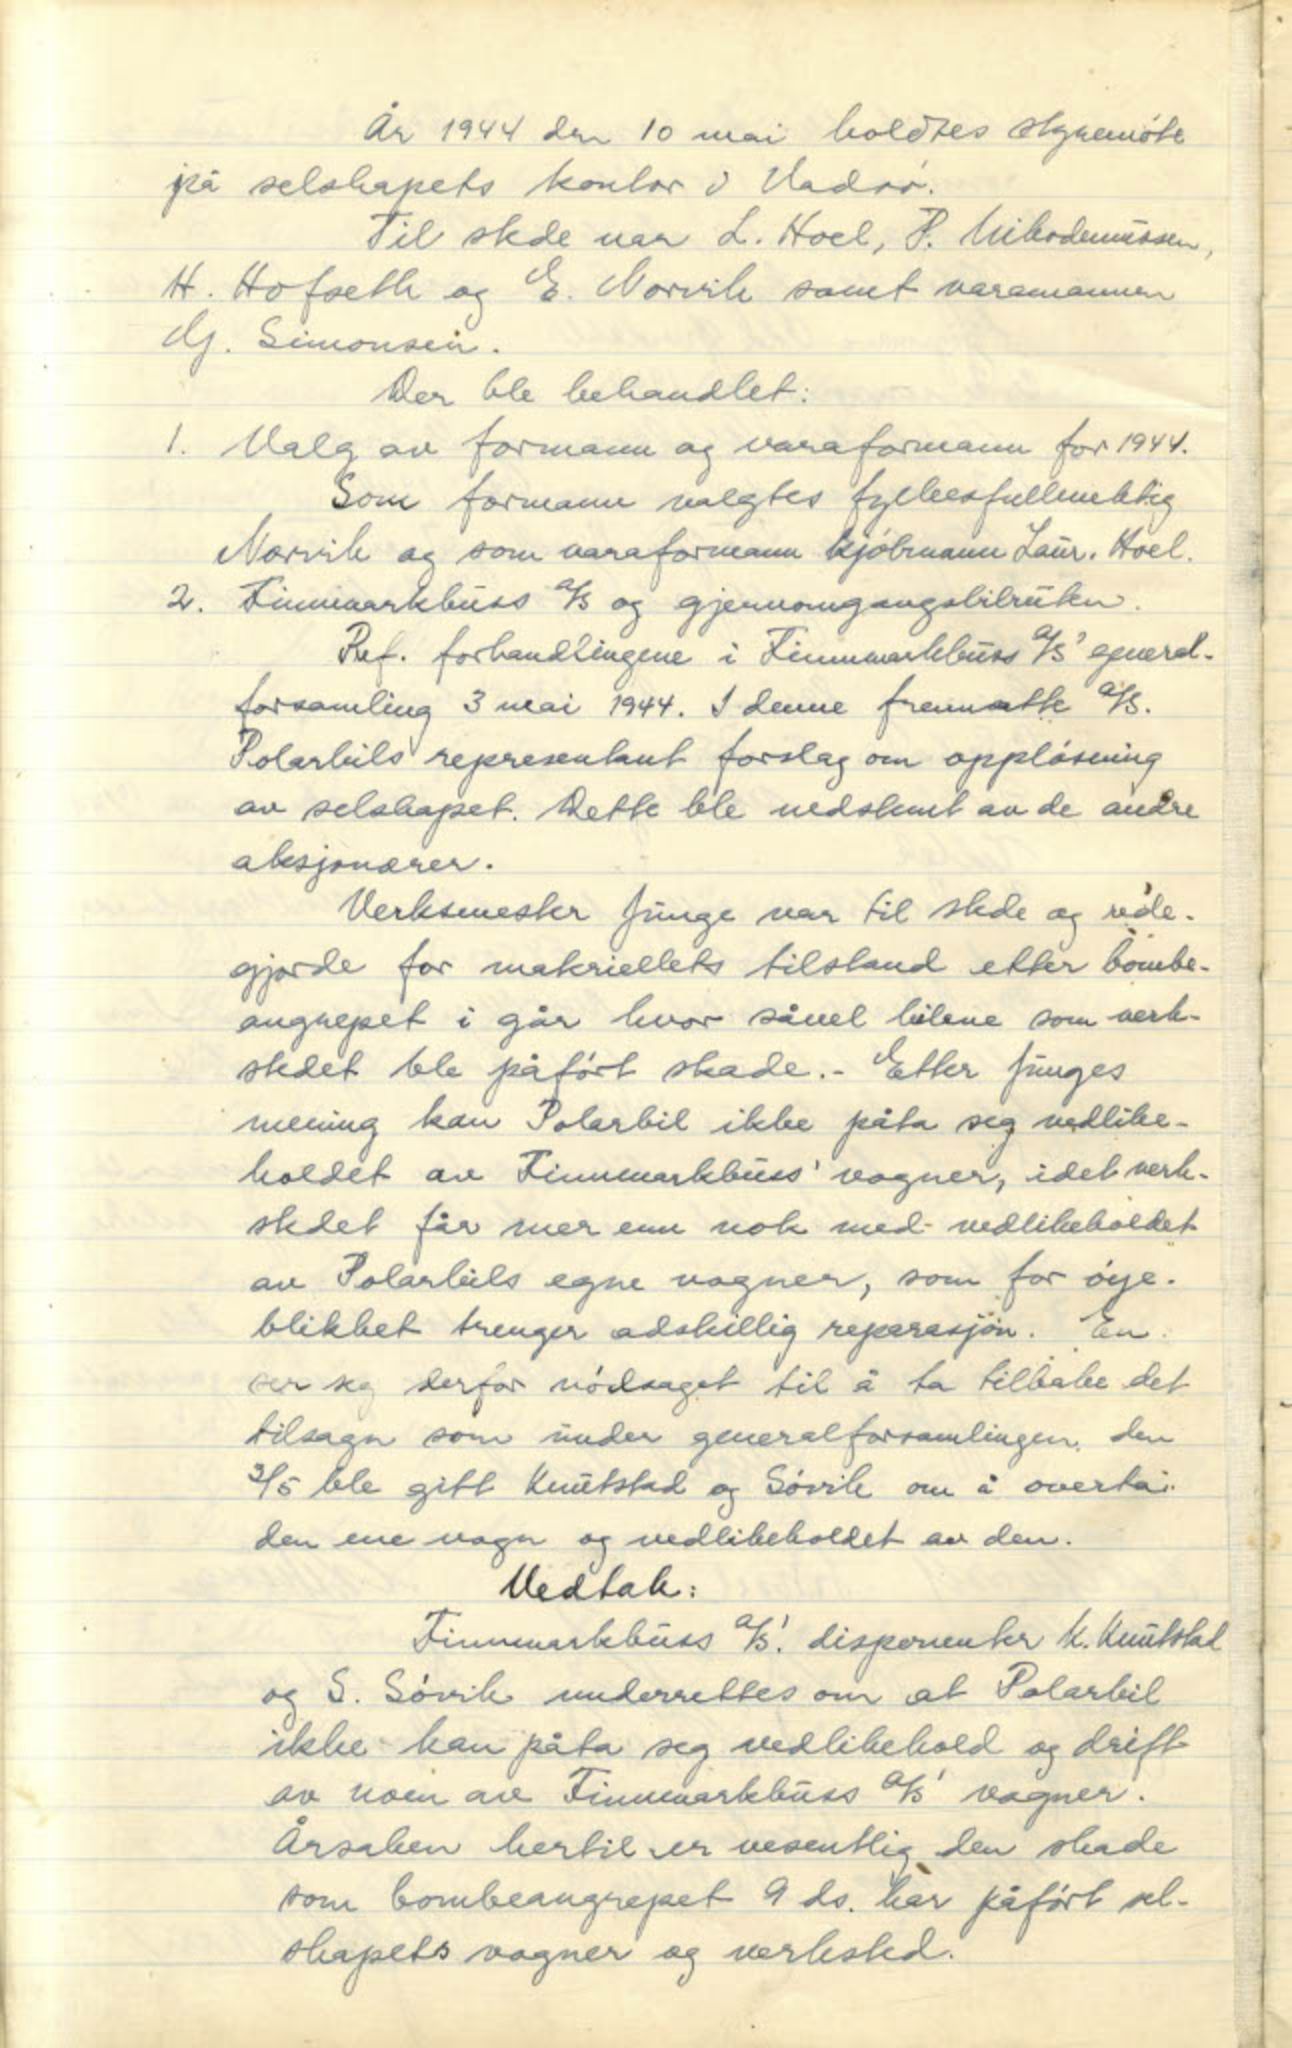 År 1944 den 10 mai holdtes styremöte
på selskapets kontor i Vadsö.
Til stede var L. Hoel, P. Nikodemussen,
H. Hofseth og E. Norvik samt varamannen
Simonsen.
Der ble behandlet:
1. Valg av formann og varaformann for 1944.
Som formann valgtes fylkesfullmektig
Norvik og som varaformann kjöbmann Laur. Hoel.
2. Finnmarkbuss A/S og gjennomgangsbilruten.
Ref. forhandlingene i Finnmarkbuss A/S' general-
forsamling 3 mai 1944. I denne fremsatte A/S.
Polarbils representant forslag om opplösning
av selskapet. Dette ble nedstemt av de andre
aksjonærer.
Verksmester Junge var til stede og rede-
gjorde for materiellets tilstand etter bombe-
angrepet i går hvor såvel bilene som verk-
stedet ble påfört skade. - Etter Junges
mening kan Polarbil ikke påta seg vedlike-
holdet av Finnmarkbuss' vogner, idet verk-
stedet får mer enn nok med vedlikeholdet
av Polarbils egne vogner, som for öye-
blikket trenger adskillig reparasjon. En
ser seg derfor nödsaget til å ta tilbake det
tilsagn som under generalforsamlingen den
3/5 ble gitt Knutstad og Sövik om å overta
den ene vogn og vedlikeholdet av den.
Vedtak:
Finnmarkbuss A/S' disponenter K. Knutstad
og S. Sövik underrettes om at Polarbil
ikke kan påta seg vedlikehold og drift
av noen av Finnmarkbuss A/S' vogner.
Årsaken hertil er vesentlig den skade
som bombeangrepet 9 ds. har påfört sel-
skapets vogner og verksted.